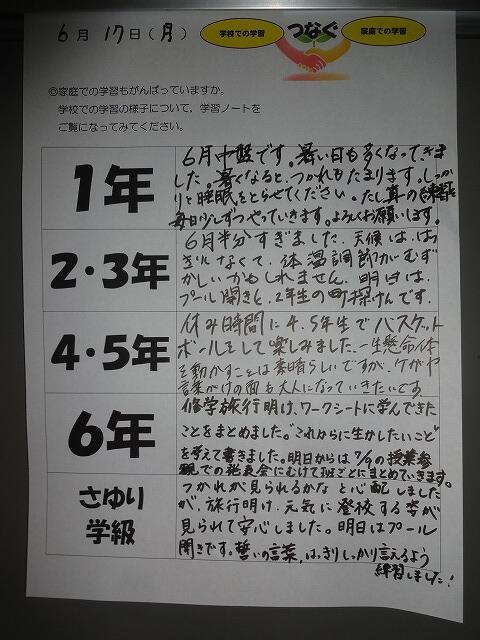 6月17日(月)
学校での学習 つなぐ 家庭での学習
◎家庭での学習もがんばっていますか。
学校での学習の様子について、学習ノートを
ご覧になってみてください。
1年
6月中盤です。暑い日も多くなってきま
した。暑くなると、つかれもたまります。しっか
りと睡眠をとらせてください。たし算の練習を
毎日少しずつやっていきます。よろしくお願いします。
2・3年
6月半分すぎました。天候は、はっ
きりしなくて、体温調節がむず
かしいかもしれません。明日は、
プール開きと、2年生の町探けんです。
4・5年
休み時間に4.5年生でバスケット
ボールをして楽しみました。一生懸命体
を動かすことは素晴らしいですが、ケガや
言葉がけの面も大人になっていきたいです。
6年
修学旅行明け、ワークシートに学んできた
ことをまとめました。"これからに生かしたいこと"
を考えて書きました。明日からは7/9の授業参
観での発表会にむけて班ごとにまとめていきます。
さゆり
学級
つかれが見られるかなと心配しました
が、旅行明け、元気に登校する姿が
見られて安心しました。明日はプール
開きです。誓いの言葉、はっきりしっかり言えるよう
練習しました!